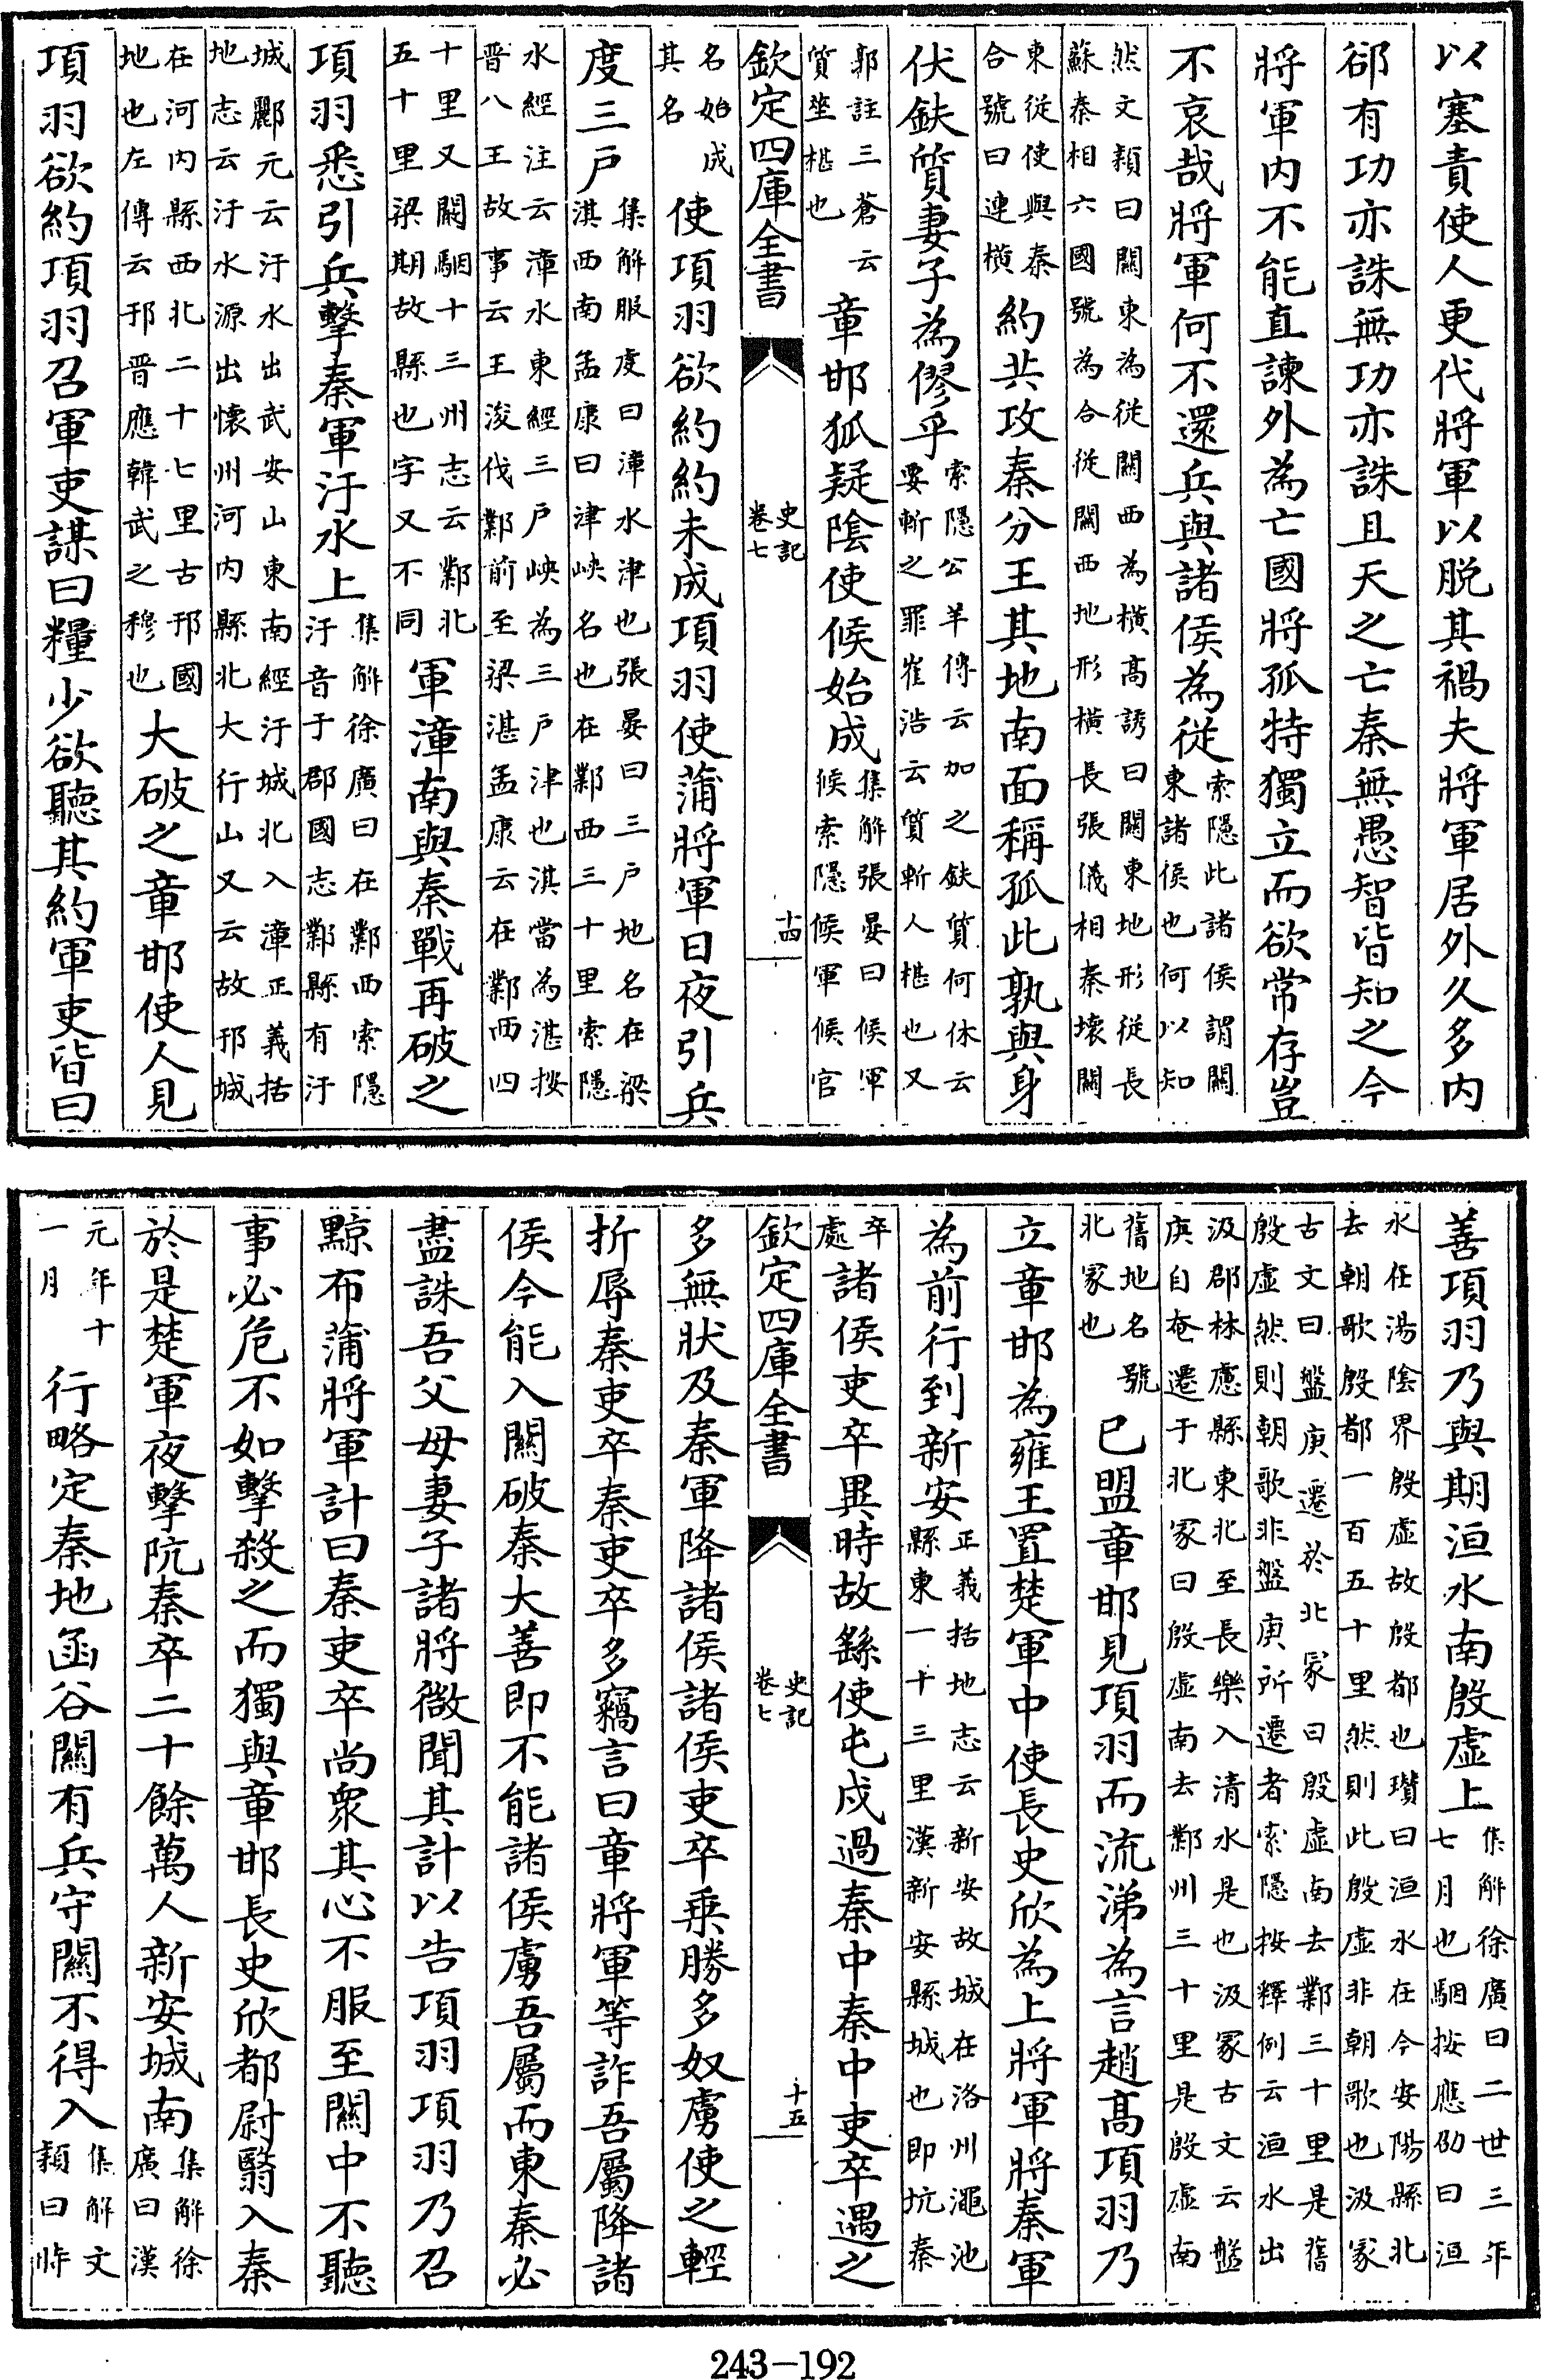 以塞責使人更代將軍以脱其禍夫將軍居外久多内
郤有功亦誅無功亦誅且天之亡秦無愚智皆知之今
將軍内不能直諫外為亡國將孤特獨立而欲常存豈
不哀哉將軍何不還兵與諸侯為從索隱此諸侯謂關東諸侯也何以知
然文頴曰關東為從關西為橫高誘曰關東地形從長蘇秦相六國號為合從關西地形橫長張儀相秦壞關
東從使與秦合號曰連橫約共攻秦分王其地南面稱孤此孰與身
伏鈇質妻子為僇乎索隱公羊傳云加之鈇質何休云要斬之罪崔浩云質斬人椹也又
郭註三蒼云質莝椹也章邯狐疑隂使候始成集解張晏曰候軍候索隱候軍候官
欽定四庫全書 史記卷七 十四
名始成其名使項羽欲約約未成項羽使蒲將軍日夜引兵
度三户集解服虔曰漳水津也張晏曰三户地名在梁淇西南孟康曰津峽名也在鄴西三十里索隱
水經注云漳水東經三户峽為三户津也淇當為湛按晉八王故事云王浚伐鄴前至梁湛孟康云在鄴西四
十里又闞駰十三州志云鄴北五十里梁期故縣也字又不同軍漳南與秦戰再破之
項羽悉引兵擊秦軍汙水上集解徐廣曰在鄴西索隱汙音于郡國志鄴縣有汙
城酈元云汙水出武安山東南經汙城北入漳正義括地志云汙水源出懷州河内縣北大行山又云故邘城
在河内縣西北二十七里古邘國地也左傳云邘晉應韓武之穆也大破之章邯使人見
項羽欲約項羽召軍吏謀曰糧少欲聽其約軍吏皆曰
善項羽乃與期洹水南殷虚上集解徐廣曰二世三年七月也駰按應劭曰洹
水在湯隂界殷虚故殷都也瓚曰洹水在今安陽縣北去朝歌殷都一百五十里然則此殷虚非朝歌也汲冢
古文曰盤庚遷於北冢曰殷虚南去鄴三十里是舊殷虚然則朝歌非盤庚所遷者索隱按釋例云洹水出
汲郡林慮縣東北至長樂入清水是也汲冢古文云盤庚自奄遷于北冢曰殷虚南去鄴州三十里是殷虚南
舊地名號北冢也已盟章邯見項羽而流涕為言趙髙項羽乃
立章邯為雍王置楚軍中使長史欣為上將軍將秦軍
為前行到新安正義括地志云新安故城在洛州澠池縣東一十三里漢新安縣城也即坑秦
卒處諸侯吏卒異時故繇使屯戍過秦中秦中吏卒遇之
欽定四庫全書 史記卷七 十五
多無狀及秦軍降諸侯諸侯吏卒乗勝多奴虜使之輕
折辱秦吏卒秦吏卒多竊言曰章將軍等詐吾屬降諸
侯今能入關破秦大善即不能諸侯虜吾屬而東秦必
盡誅吾父母妻子諸將微聞其計以告項羽項羽乃召
黥布蒲將軍計曰秦吏卒尚衆其心不服至關中不聽
事必危不如擊殺之而獨與章邯長史欣都尉翳入秦
於是楚軍夜擊阬秦卒二十餘萬人新安城南集解徐廣曰漢
元年十一月行略定秦地函谷關有兵守關不得入集解文頴曰時
243-192